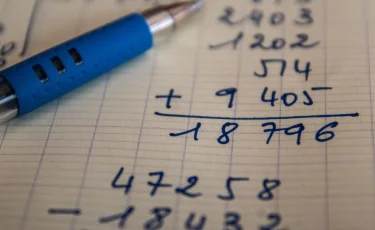 2903
1202
514
+ 9 405
18 796
47258
- 18432